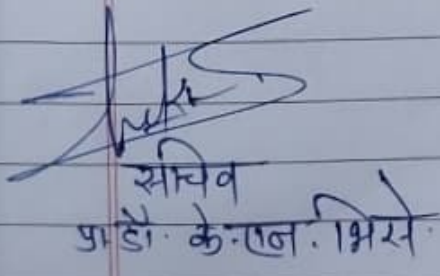 सचिव
प्रा. डॉ. के. एन. भिसे.